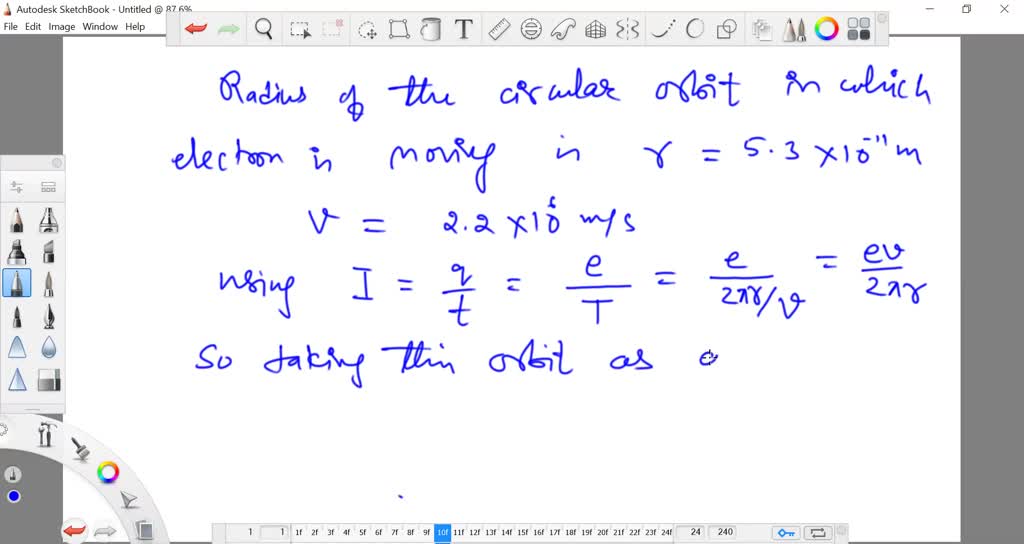 Autodesk SketchBook - Untitled @ 87.6%
File Edit Image Window Help
Radius of the circular orbit in which
electron is moving is r = 5.3 ×10⁻¹¹ m
v = 2.2 ×10⁶ m/s
using I = q/t = e/T = e/(2πr/v) = ev/2πr
So taking this orbit as
1 1 1f 2f 3f 4f 5f 6f 7f 8f 9f 10f 11f 12f 13f 14f 15f 16f 17f 18f 19f 20f 21f 22f 23f 24f 24 240